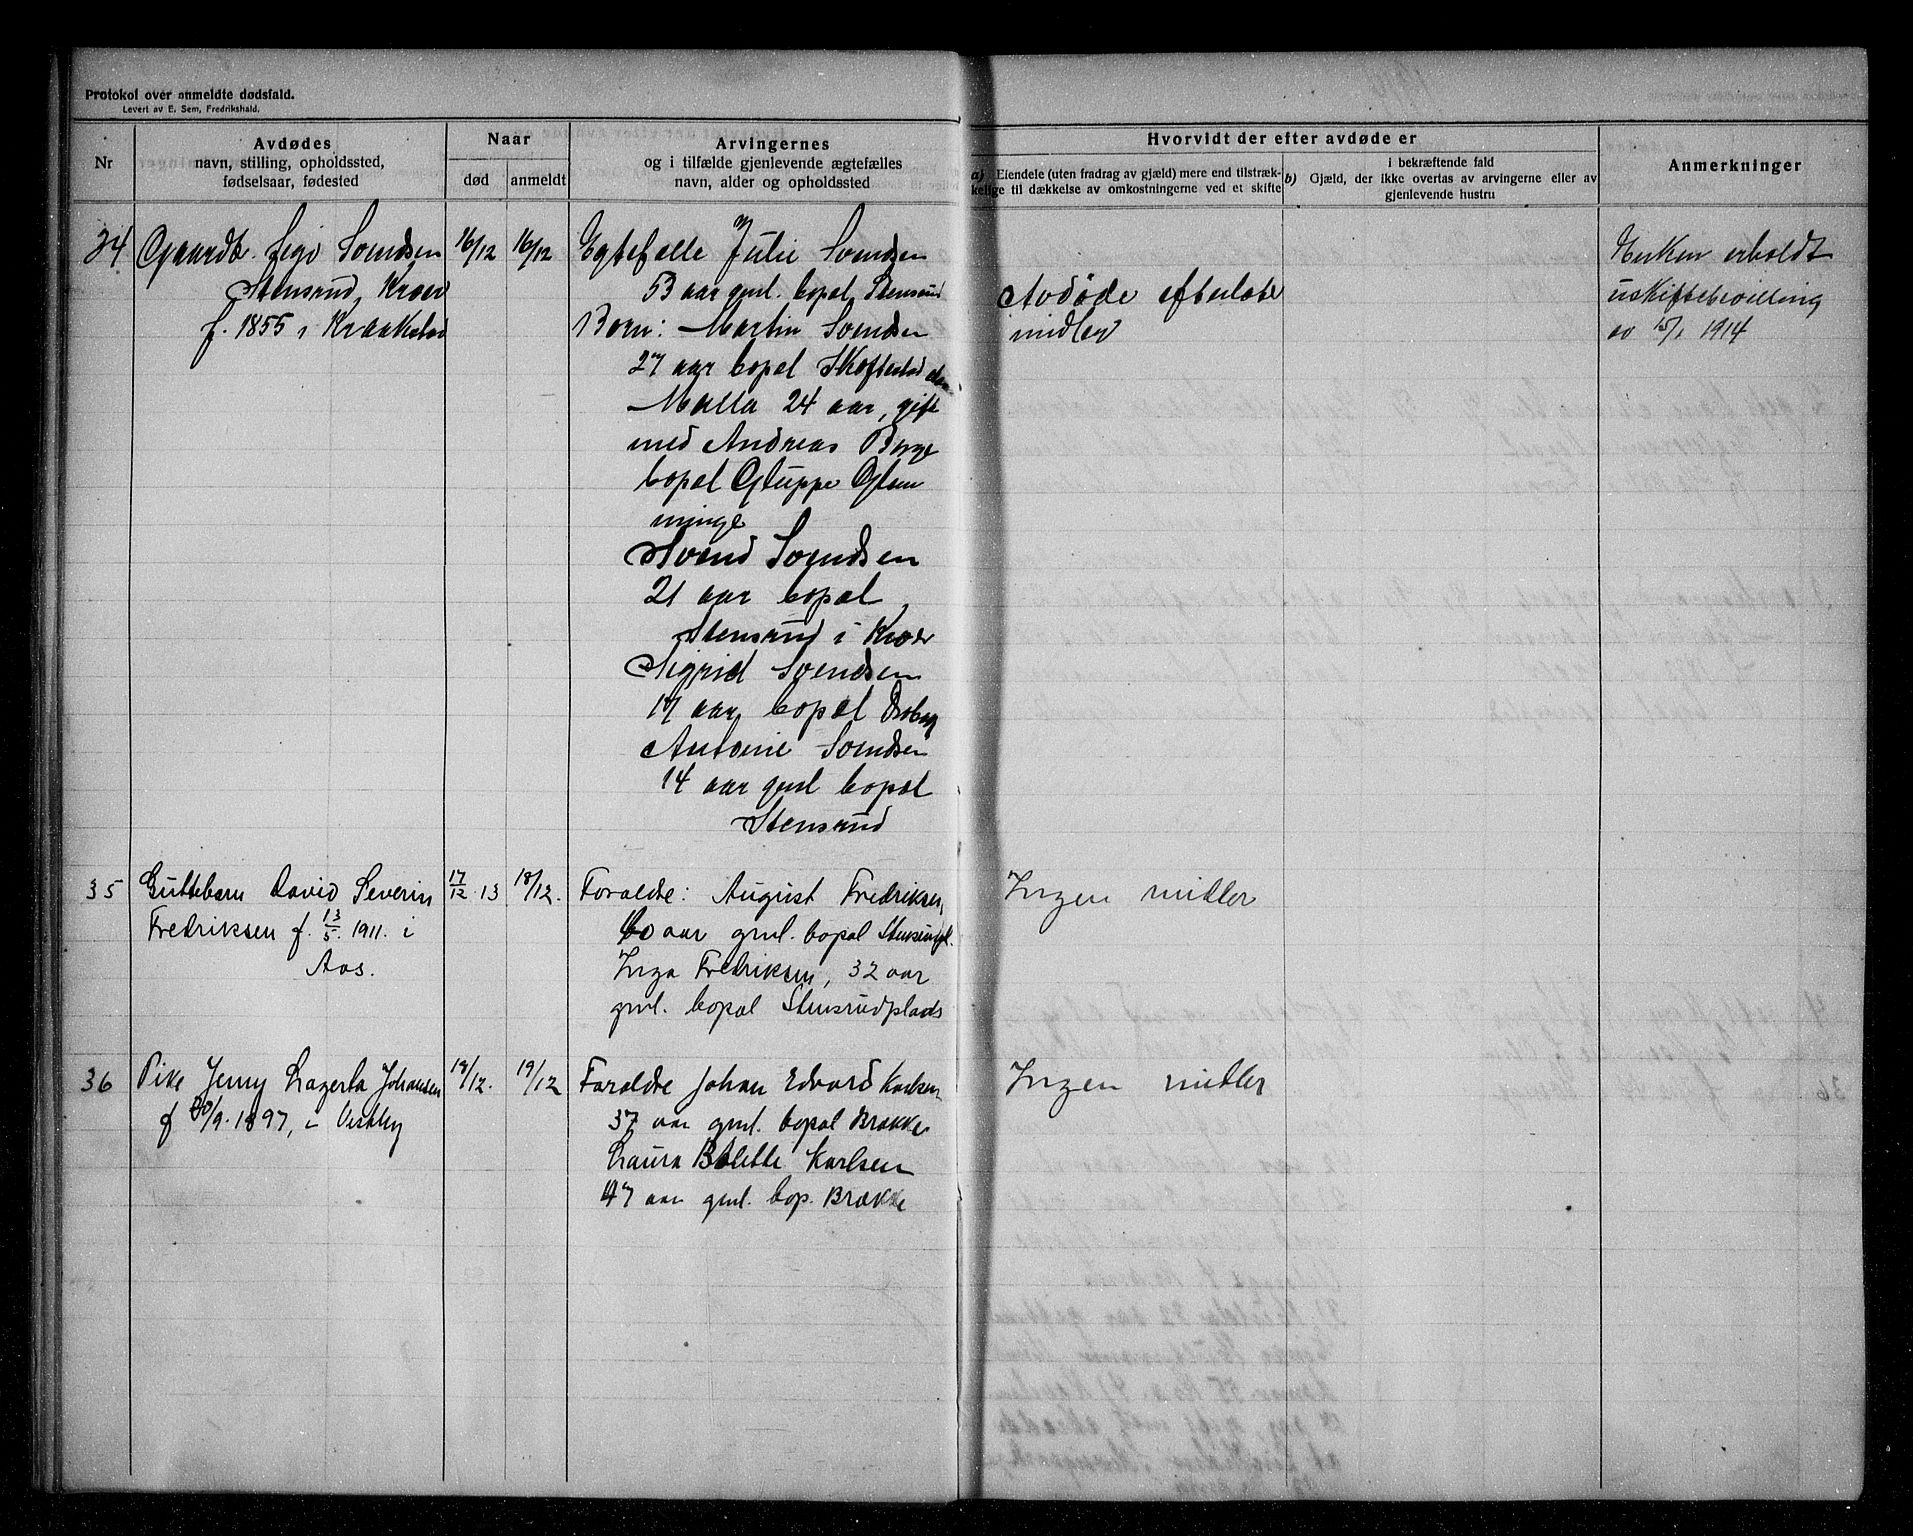 Protokol over anmeldte dødsfald.
Levert av E. Sem, Fredrikshald.
Nr
Avdødes
navn, stilling, opholdssted,
fødselsaar, fødested
Naar
død
anmeldt
Arvingernes
og i tilfælde gjenlevende ægtefælles
navn, alder og opholdssted
Hvorvidt der efter avdøde er
a) Eiendele (uten fradrag av gjæld) mere end tilstræk-
kelige til dækkelse av omkostningerne ved et skifte
i bekræftende fald
b) Gjæld, der ikke overtas av arvingerne eller av
gjenlevende hustru
Anmerkninger
34
Svendsen
Stensrud, Kroer
f. 1855 i Kraakstad
16/12
16/12
Egtefelle Julie Svendsen
53 aar gml. bopæl Stensrud
Born: Martin Svendsen
27 aar bopæl
24 aar, gift
med Andreas Borge
bopæl Gluppe Glem
minge
Svend Svendsen
21 aar bopæl
Stensrud i Kroer
Sigrid Svendsen
17 aar bopæl Drøbag
Antonie Svendsen
14 aar gml bopæl
Stensrud
Avdøde efterlater
midler
Enken erholdt
uskiftebevilling
av 15/1 1914
35
Guttebarn David Severin
Fredriksen f. 13/5. 1911. i
Aas.
17/12 13
18/12.
Foraldre: August Fredriksen,
60 aar gml. bopæl Stensrudpl.
Inga Fredriksen, 32 aar
gml. bopæl Stensrudplads
Ingen midler
36
Pike Jenny Lagerta Johansen
f 30/9. 1897, i Vestby
18/12.
19/12
Foraldre Johan Edvard Karlsen
37 aar gml. bopal Brække
Laura Bolette Karlsen
47 aar gml. bop. Brække
Ingen midler